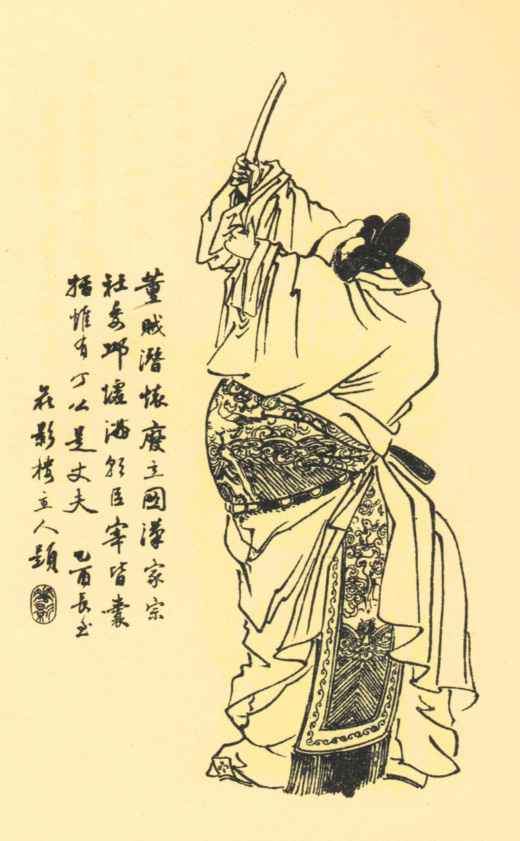 董賊潛懷廢立圖漢家宗
社委邱墟滿朝臣宰皆囊
括惟有丁公是丈夫 乙酉長至
花影樓主人題